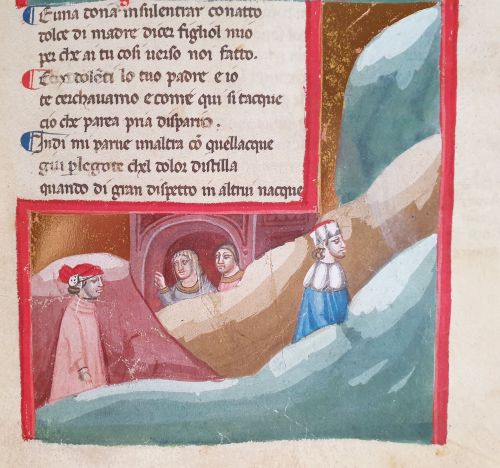 Et una dona insulentrar conatto
dolce di madre dicer fighol mio
per che ai tu cosi verso noi fatto.
Ecco dolenti lo tuo padre e io
te cerchavamo e come qui si tacque
cio che parea pria disparío.
Indi mi parue unaltra cō quellacque
giu plegote chel dolor distilla
quando di gran dispetto in altrui nacque